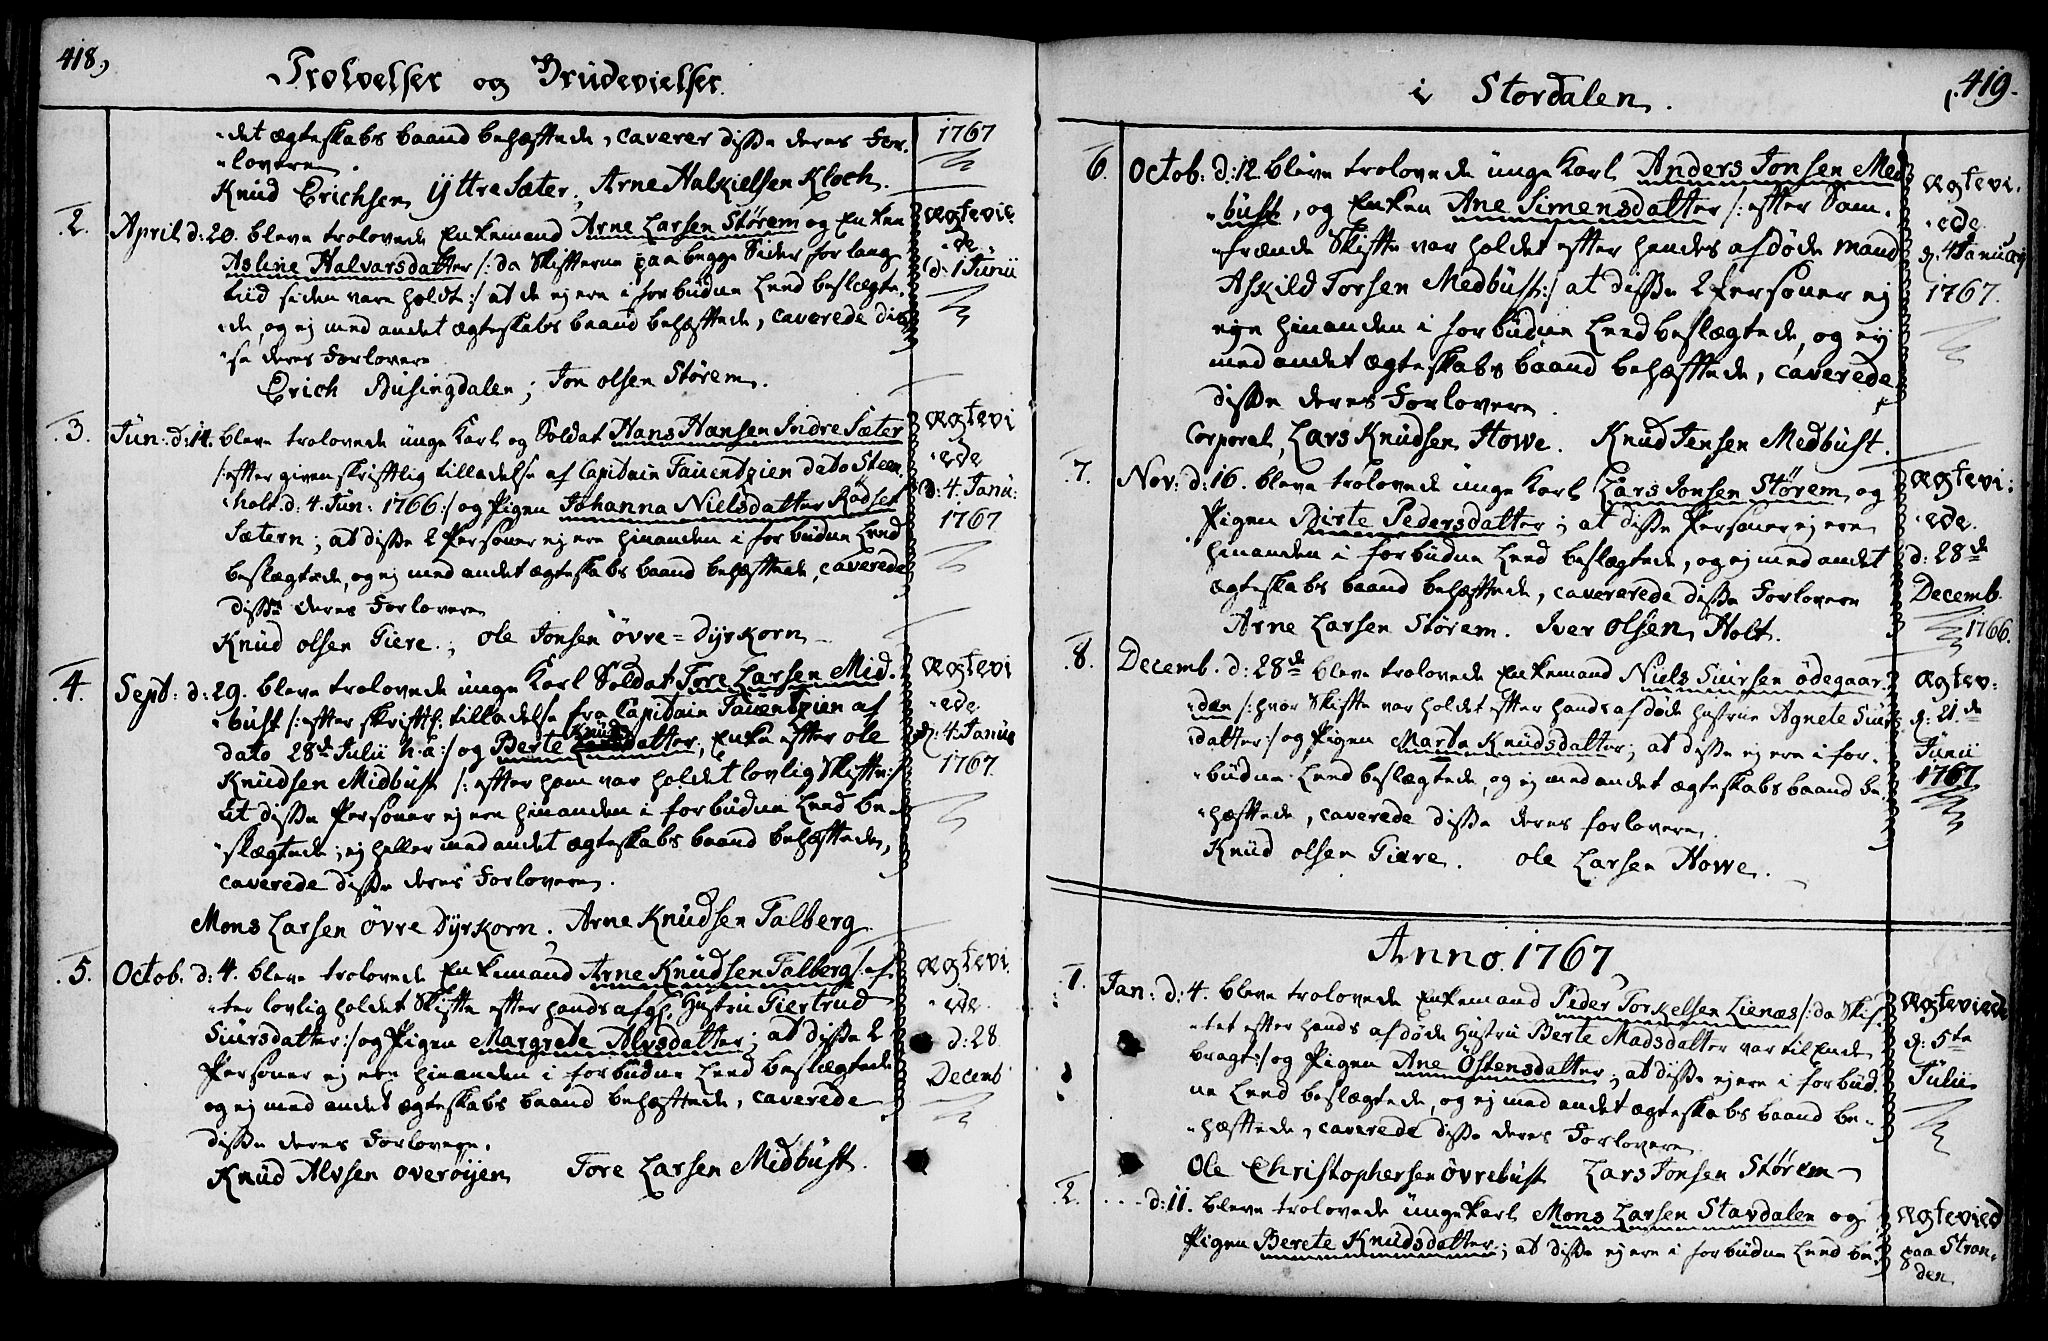 418,
Trolvelser og Brudevielser
det ægteskabs baand behæftede, caverer disse deres For-
lovere.
Knud Erichsen Yttre Sæter, Arne Halkielsen Kloch.
1767
2. April d: 20. bleve trolovede Enkemand Arne Larsen Störem og Enken
Asline Halvarsdatter /: da Skifterne paa begge Sider for lang
tiid siden vare holdt :/ at de ej ere i forbudne Leed beslægte-
de, og ej med andet ægteskabs baand behæftede, caverede dis-
se deres Forlovere
Erich Busingdalen; Jon olsen Störem.
Ægtevie
de
d: 1 Junii
3. Jun: d: 14. bleve trolovede unge Karl og Soldat Hans Hansen Indre Sæter
/: efter given skriftlig tilladelse af Capitain Tauentzien dato Steen
holt. d. 4. Jun: 1766 :/ og Pigen Johanna Nielsdatter Rödset
Sætern; at disse 2 Personer ej ere hinanden i forbudne Leed
beslægtede, og ej med andet ægteskabs baand behæftede, caverede
disse deres Forlovere
Knud olsen Giere.; ole Jonsen övre=Dyrkorn
Ægtevi
ede
d: 4. Janu:
1767
4. Sept: d: 29. bleve trolovede unge Karl Soldat Tore Larsen Mid-
bust /: efter skriftl: tilladelse fra Capitain Tauentzien af
dato 28de Julii h: a :/ og Berte Knudsdatter, Enke efter ole
Knudsen Midbust /: efter ham var holdet lovlig Skifte :/
at disse Personer ej ere hinanden i forbudne Leed be-
slægtede; ej heller med andet ægteskabs baand behæftede,
caverede disse deres Forlovere.
Mons Larsen övre Dyrkorn. Arne Knudsen Talberg
Ægtevi
ede
d: 4. Janus
1767.
5. Octob. d: 4. bleve trolovede Enkemand Arne Knudsen Talberg /: ef-
ter lovlig holdet Skifte efter hands afg: Hustru Giertrud
Siursdatter :/ og Pigen Margrete Alvsdatter; at disse 2
Personer ej ere hinanden i forbudne Leed beslægtede
og ej med andet ægteskabs baand behæftede, caverede
disse deres Forlovere.
Knud Alvsen overöyen Tore Larsen Midbust.
Ægtevi
ede
d: 28
Decemb
i Stordalen.
419.
6. Octob: d: 12 bleve trolovede unge Karl Anders Jonsen Med-
bust, og Enken Ane Simensdatter /: efter Sam-
frænde Skifte var holdet efter hendes afdöde mand
Askild Torsen Medbust :/ at disse 2 Personer ej
ere hinanden i forbudne Leed beslægtede, og ej
med andet ægteskabs baand behæftede, caverede
disse deres Forlovere.
Corporal, Lars Knudsen Howe. Knud Jensen Medbust.
Ægtevi-
ede
d. 4 January
1767.
7. Nov: d: 16. bleve trolovede unge Karl Lars Jonsen Störem og
Pigen Birte Pedersdatter; at disse Personer ej ere
hinanden i forbudne Leed beslægtede, og ej med andet
ægteskabs baand behæftede, cavererede disse Forlovere
Arne Larsen Störem. Iver olsen Holt.
Ægtevi:
ede.
d: 28de
Decemb.
1766.
8. Decemb. d: 28de bleve trolovede Enkemand Niels Siursen ödegaar-
den /: hvor Skifte var holdet efter hands afdöde hustrue Agnete Siurs
datter :/ og Pigen Marta Knudsdatter; at disse ej ere i for-
budne Leed beslægtede, og ej med andet ægteskabs baand be-
hæftede, caverede disse deres forlovere.
Knud olsen Giære. ole Larsen Howe.
Ægtev:
d: 21.de
Junii
1767
Anno. 1767
1. Jan: d: 4. bleve trolovede Enkemand Peder Torkelsen Lienæs /: da Skif-
tet efter hands afdöde Hustru Berte Madsdatter var til Ende
bragt :/ og Pigen Ane Östensdatter; at disse ej ere i forbud-
ne Leed beslægtede, og ej med andet ægteskabs baand be-
hæftede, caverede disse deres Forlovere
Ole Christophersen övrebust Lars Jonsen Störem
Ægteviede
d: 5te
Julii
2. - - - d: 11. bleve trolovede unge Karl Mons Larsen Stavdalen og
Pigen Berete Knudsdatter; at disse ej ere i forbudne Leed be-
Ægtevied
paa Stran-
den